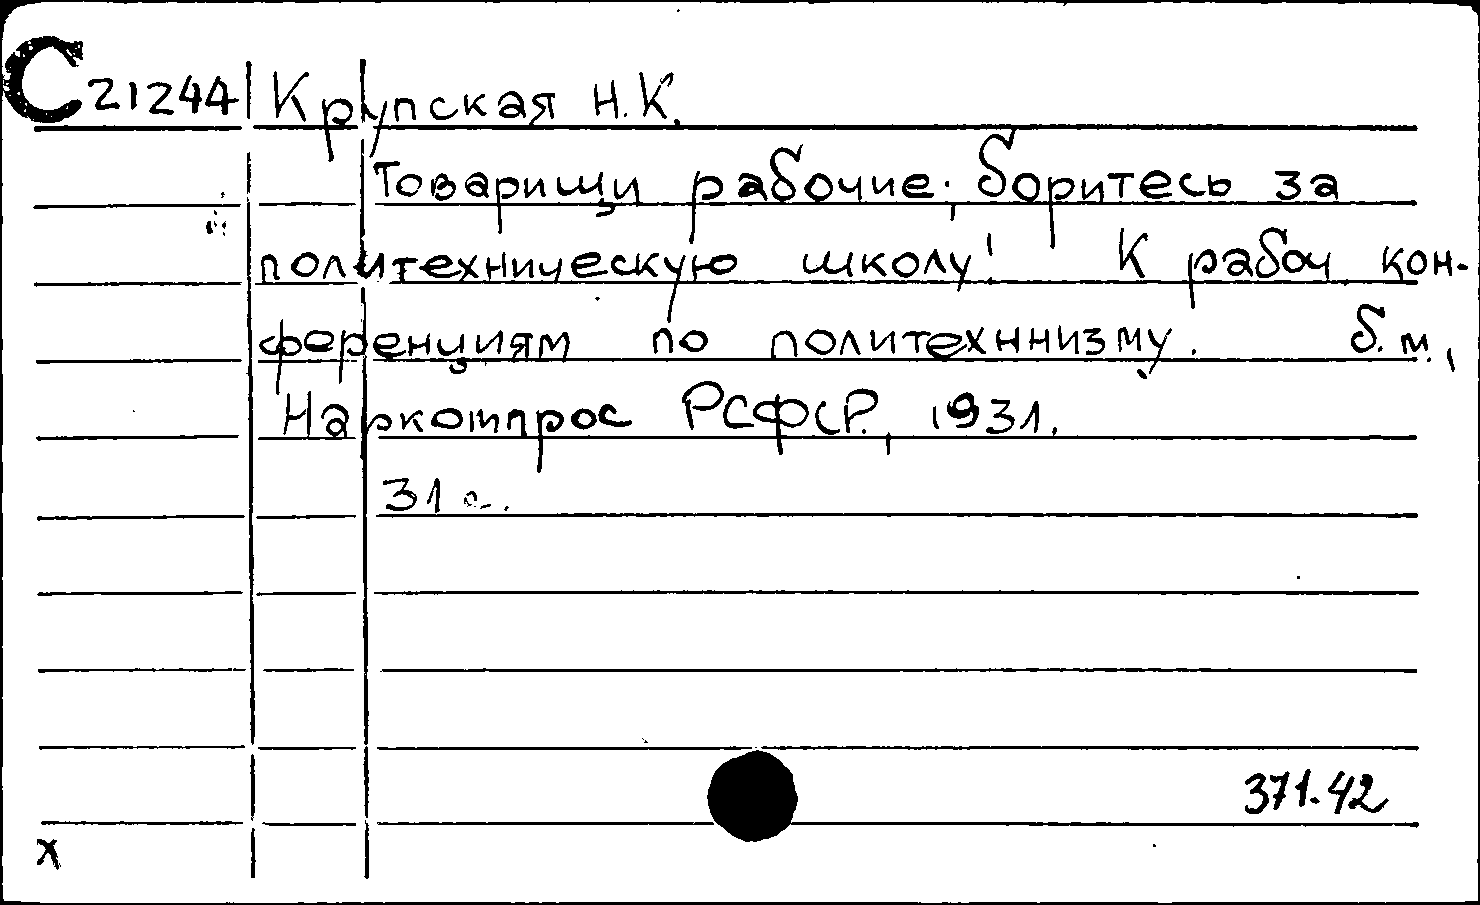 С 21244 Крупская Н.К.
Товарищи рабочие, боритесь за
политехническую школу! К рабоч. кон-
ференциям по политехннизму. б.м.,
Наркомпрос РСФСР, 1931.
31 с.
371.42
x